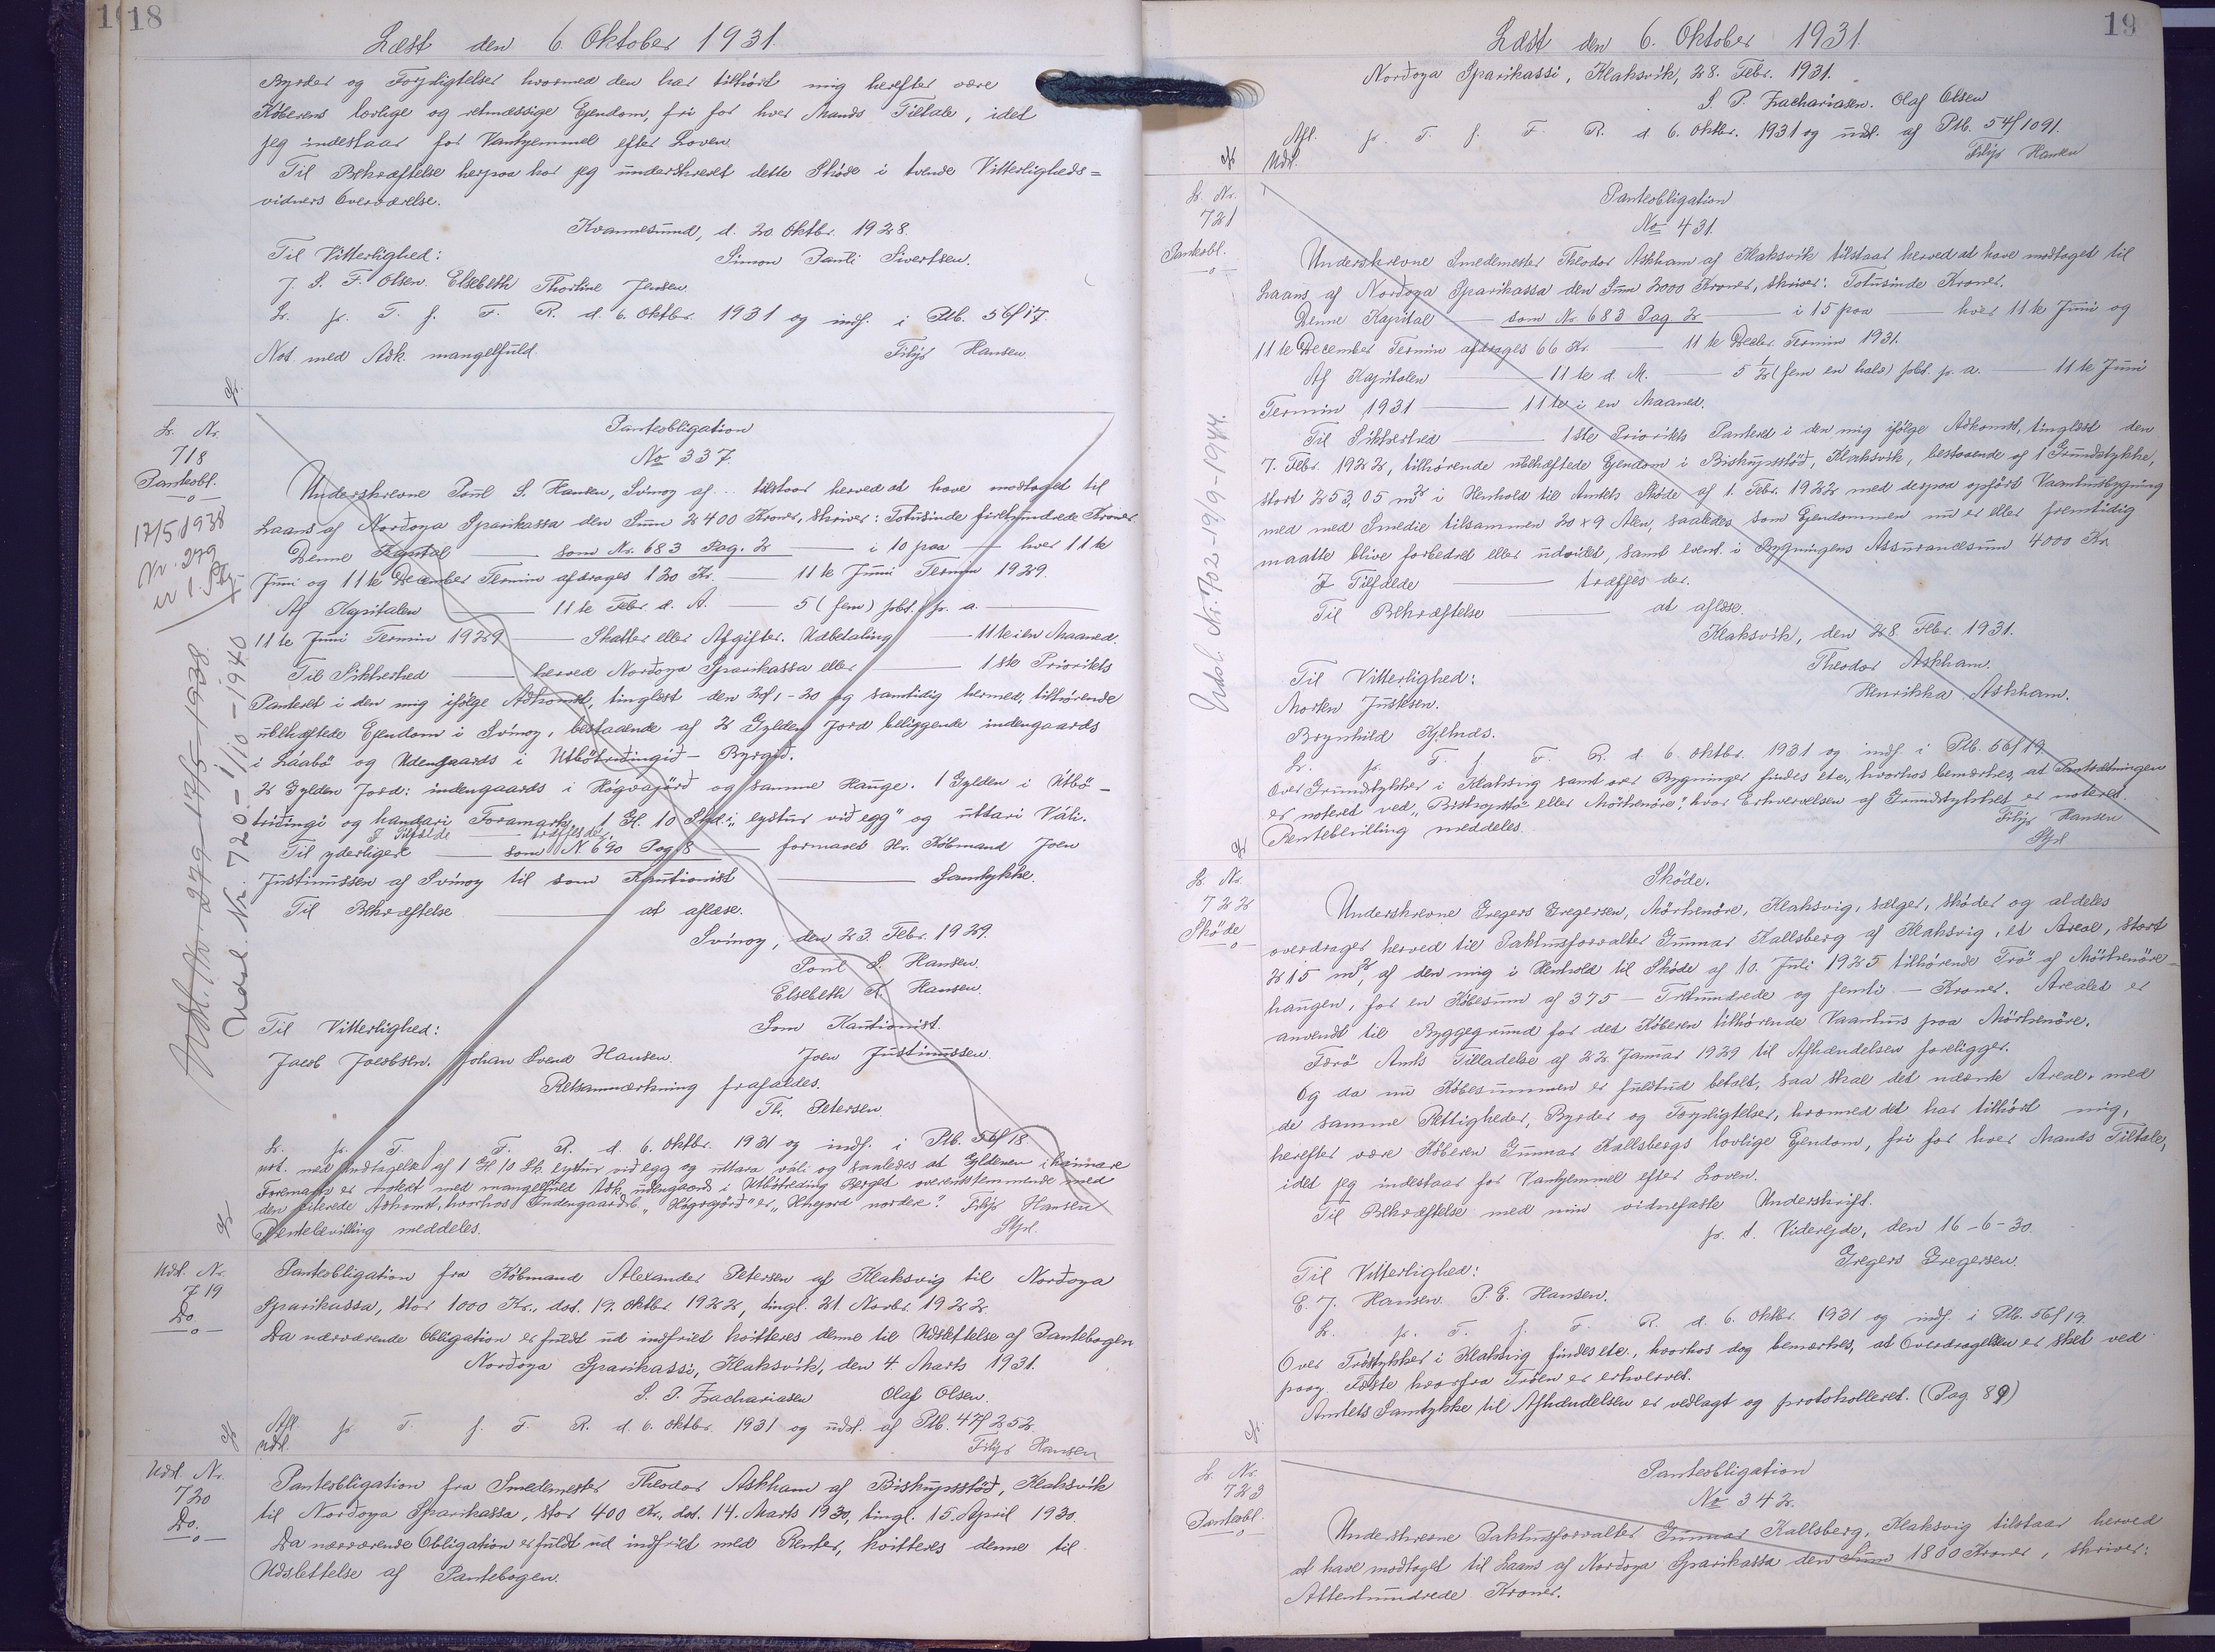 18
Læst den 6. Oktober 1931.
Byrder og Forpligtelser hvormed den har tilhørt mig herefter være
Køberens lovlige og retmæssige Ejendom, fri for hver Mands Tiltale, idet
jeg indestaar for Vanhjemmel efter Loven.
Til Bekræftelse herpaa har jeg underskrevet dette Skøde i tvende Vitterligheds=
vidners Overværelse.
Kvannesund, d. 20 Oktbr. 1928.
Til Vitterlighed:
Simon Pauli Sivertsen.
J. S. F. Olsen. Elsebeth Thorline Jensen
L. p. T. f. F. R. d. 6. Oktbr. 1931 og indf. i Ptb. 56f17.
Not. med Adk. mangelfuld.
Filip Hansen.
L. Nr.
718
Panteobl.
17/5 1938
Nr. 279
Udsl. Nr. 279-17/5-1938
Udsl. Nr. 720.-1/10-1940
Panteobligation
No 337.
Underskrevne Poul S. Hansen, Svinoy af... tilstaar herved at have modtaget til
Laans af Nordoya Sparikassa den Sum 2400 Kroner, skriver: Totusinde firehundrede Kroner.
Denne Kapital — som Nr. 683 Pag. 2 — i 10 paa — hver 11te
Juni og 11te December Termin afdrages 120 Kr. — 11te Juni Termin 1929.
Af Kapitalen — 11te Febr. d. A. — 5 (fem) pCt. p. a. —
11te Juni Termin 1929 — Skatter eller Afgifter. Udbetaling — 11te i en Maaned.
Til Sikkerhed — herved Nordoya Sparikassa eller — 1ste Prioritets
Panteret i den mig ifølge Adkomst, tinglæst den 24/1-20 og samtidig hermed, tilhørende
ubehæftede Ejendom i Svinoy, bestaaende af 2 Gylden Jord beliggende indengaards
i Láabø og Udengaards i Utbötriðingið - Byrgið.
2 Gylden Jord: indengaards i Høgvagørð og samme Hauge. 1 Gylden i Útbø-
triðingi og handari Foramark, 1 Gl. 10 Skd. i "eystur við egg" og uttari Váli.
I Tilfælde — træffes der.
Til yderligere — som N. 690 Pag. 8 — formaaet Hr. Købmand Joen
Justinussen af Svinoy til som Kautionist — Samtykke.
Til Bekræftelse — at aflæse.
Svinoy, den 23. Febr. 1929.
Poul S. Hansen.
Elsebeth K. Hansen.
Til Vitterlighed:
Som Kautionist.
Jacob Jacobsen. Johan Svend Hansen.
Joen Justinussen.
Retsanmærkning frafaldes.
Th. Petersen
L. p. T. f. F. R. d. 6. Oktbr. 1931 og indf. i Ptb. 56f18.
not. med Undtagelse af 1 Gl 10 Sk. eystur við egg og uttara váli og saaledes at Gyldenen i hannare
Foremark er noteret med mangelfuld Adk. udengaards i Utbøtreding Berget overensstemmende med
den citerede Adkomst, hvorhos Indengaards "Høgvagørð" er "Uhegard nordere". Filip Hansen
Rentebevilling meddeles.
Stpl.
Udsl. Nr.
719
Do
Panteobligation fra Købmand Alexander Petersen af Klaksvig til Nordoya
Sparikassa, stor 1000 Kr., dat. 19. Oktbr. 1922, tingl. 21. Novbr. 1922.
Da nærværende Obligation er fuldt ud indfriet kvitteres denne til Udslettelse af Pantebogen.
Nordoya Sparikassi, Klaksvik, den 4. Marts 1931.
S. P. Zachariasen Olaf Olsen.
Afl. p. T. f. F. R. d. 6. Oktbr. 1931 og udsl. af Ptb. 47f252.
Udsl.
Filip Hansen
Udsl. Nr.
720
Do.
Panteobligation fra Smedemester Theodor Askham af Biskupsstöd, Klaksvik
til Nordoya Sparikassa, stor 400 Kr., dat. 14. Marts 1930, tingl. 15. April 1930.
Da nærværende Obligation er fuldt ud indfriet med Renter, kvitteres denne til
Udslettelse af Pantebogen.
19
Læst den 6. Oktober 1931.
Nordoya Sparikassi, Klaksvik, 28. Febr. 1931.
S. P. Zachariasen. Olaf Olsen
Afl. p. T. f. F. R. d. 6. Oktbr. 1931 og udsl. af Ptb. 54f1091.
Udsl.
Filip Hansen
L. Nr.
721
Panteobl.
Udsl. Nr. 702-19/9-1944.
Panteobligation
No 431.
Underskrevne Smedemester Theodor Askham af Klaksvik tilstaar herved at have modtaget til
Laans af Nordoya Sparikassa den Sum 2000 Kroner, skriver: Totusinde Kroner.
Denne Kapital — som Nr. 683 Pag. 2 — i 15 paa — hver 11te Juni og
11te December Termin afdrages 66 Kr. — 11te Decbr. Termin 1931.
Af Kapitalen — 11te d. M. — 5 1/2 (fem en halv) pCt. p. a. — 11te Juni
Termin 1931 — 11te i en Maaned.
Til Sikkerhed — 1ste Prioritets Panteret i den mig ifølge Adkomst, tinglæst den
7. Febr. 1922, tilhørende ubehæftede Ejendom i Biskupsstöd, Klaksvik, bestaaende af 1 Grundstykke,
stort 253,05 m2 i Henhold til Amtets Skøde af 1. Febr. 1922 med despaa opført Vaaningsbygning
med med Smedie tilsammen 20 x 9 Alen, saaledes som Ejendommen nu er eller fremtidig
maatte blive forbedret eller udvidet, samt event. i Bygningens Assurancesum 4000 Kr.
I Tilfælde — træffes der.
Til Bekræftelse — at aflæse.
Klaksvik, den 28. Febr. 1931.
Theodor Askham.
Til Vitterlighed:
Henrikka Askham.
Morten Justesen.
Brynhild Kjelnæs.
L. p. T. f. F. R. d. 6. Oktbr. 1931 og indf. i Ptb. 56f19.
Over Grundstykker i Klaksvig samt over Bygninger findes etc., hvorhos bemærkes, at Pantsætningen
er noteret ved "Biskopstö" eller Mörkenöre", hvor Erhvervelsen af Grundstykket er noteret.
Rentebevilling meddeles.
Filip Hansen
Stpl
L. Nr.
722
Skøde
Skøde.
Underskrevne Gregers Gregersen, Mörkenöre, Klaksvig, sælger, skøder og aldeles
overdrager herved til Pakhusforvalter Gunnar Kallsberg af Klaksvig, et Areal, stort
215 m2, af den mig i Henhold til Skøde af 10. Juli 1925 tilhørende Trö af Mörkenöre-
haugen, for en Købesum af 375 — Trehundrede og femti — Kroner. Arealet er
anvendt til Byggegrund for det Køberen tilhørende Vaanhus paa Mörkenöre.
Færø Amts Tilladelse af 22. Januar 1929 til Afhændelsen foreligger.
Og da nu Købesummen er fuldtud betalt, saa skal det nævnte Areal, med
de samme Rettigheder, Byrder og Forpligtelser, hvormed det har tilhørt mig,
herefter være Køberen Gunnar Kallsbergs lovlige Ejendom, fri for hver Mands Tiltale,
idet jeg indestaar for Vanhjemmel efter Loven.
Til Bekræftelse med min vidnefaste Underskrift.
p. t. Videreide, den 16-6-30.
Gregers Gregersen.
Til Vitterlighed:
E. J. Hansen. P. E. Hansen.
L. p. T. f. F. R. d. 6. Oktbr. 1931 og indf. i Ptb. 56f19.
Over Tröstykker i Klaksvig findes etc., hvorhos dog bemærkes, at Overdragelsen er sket ved
paag. Fæste hvorfra Tröen er erhvervet.
Amtets Samtykke til Afhændelsen er vedlagt og protokolleret. (Pag 89)
L. Nr.
723
Panteobl.
Panteobligation
No 342.
Underskrevne Pakhusforvalter Gunnar Kallsberg, Klaksvig tilstaar herved
at have modtaget til Laans af Nordoya Sparikassa den Sum 1800 Kroner, skriver:
Attenhundrede Kroner.